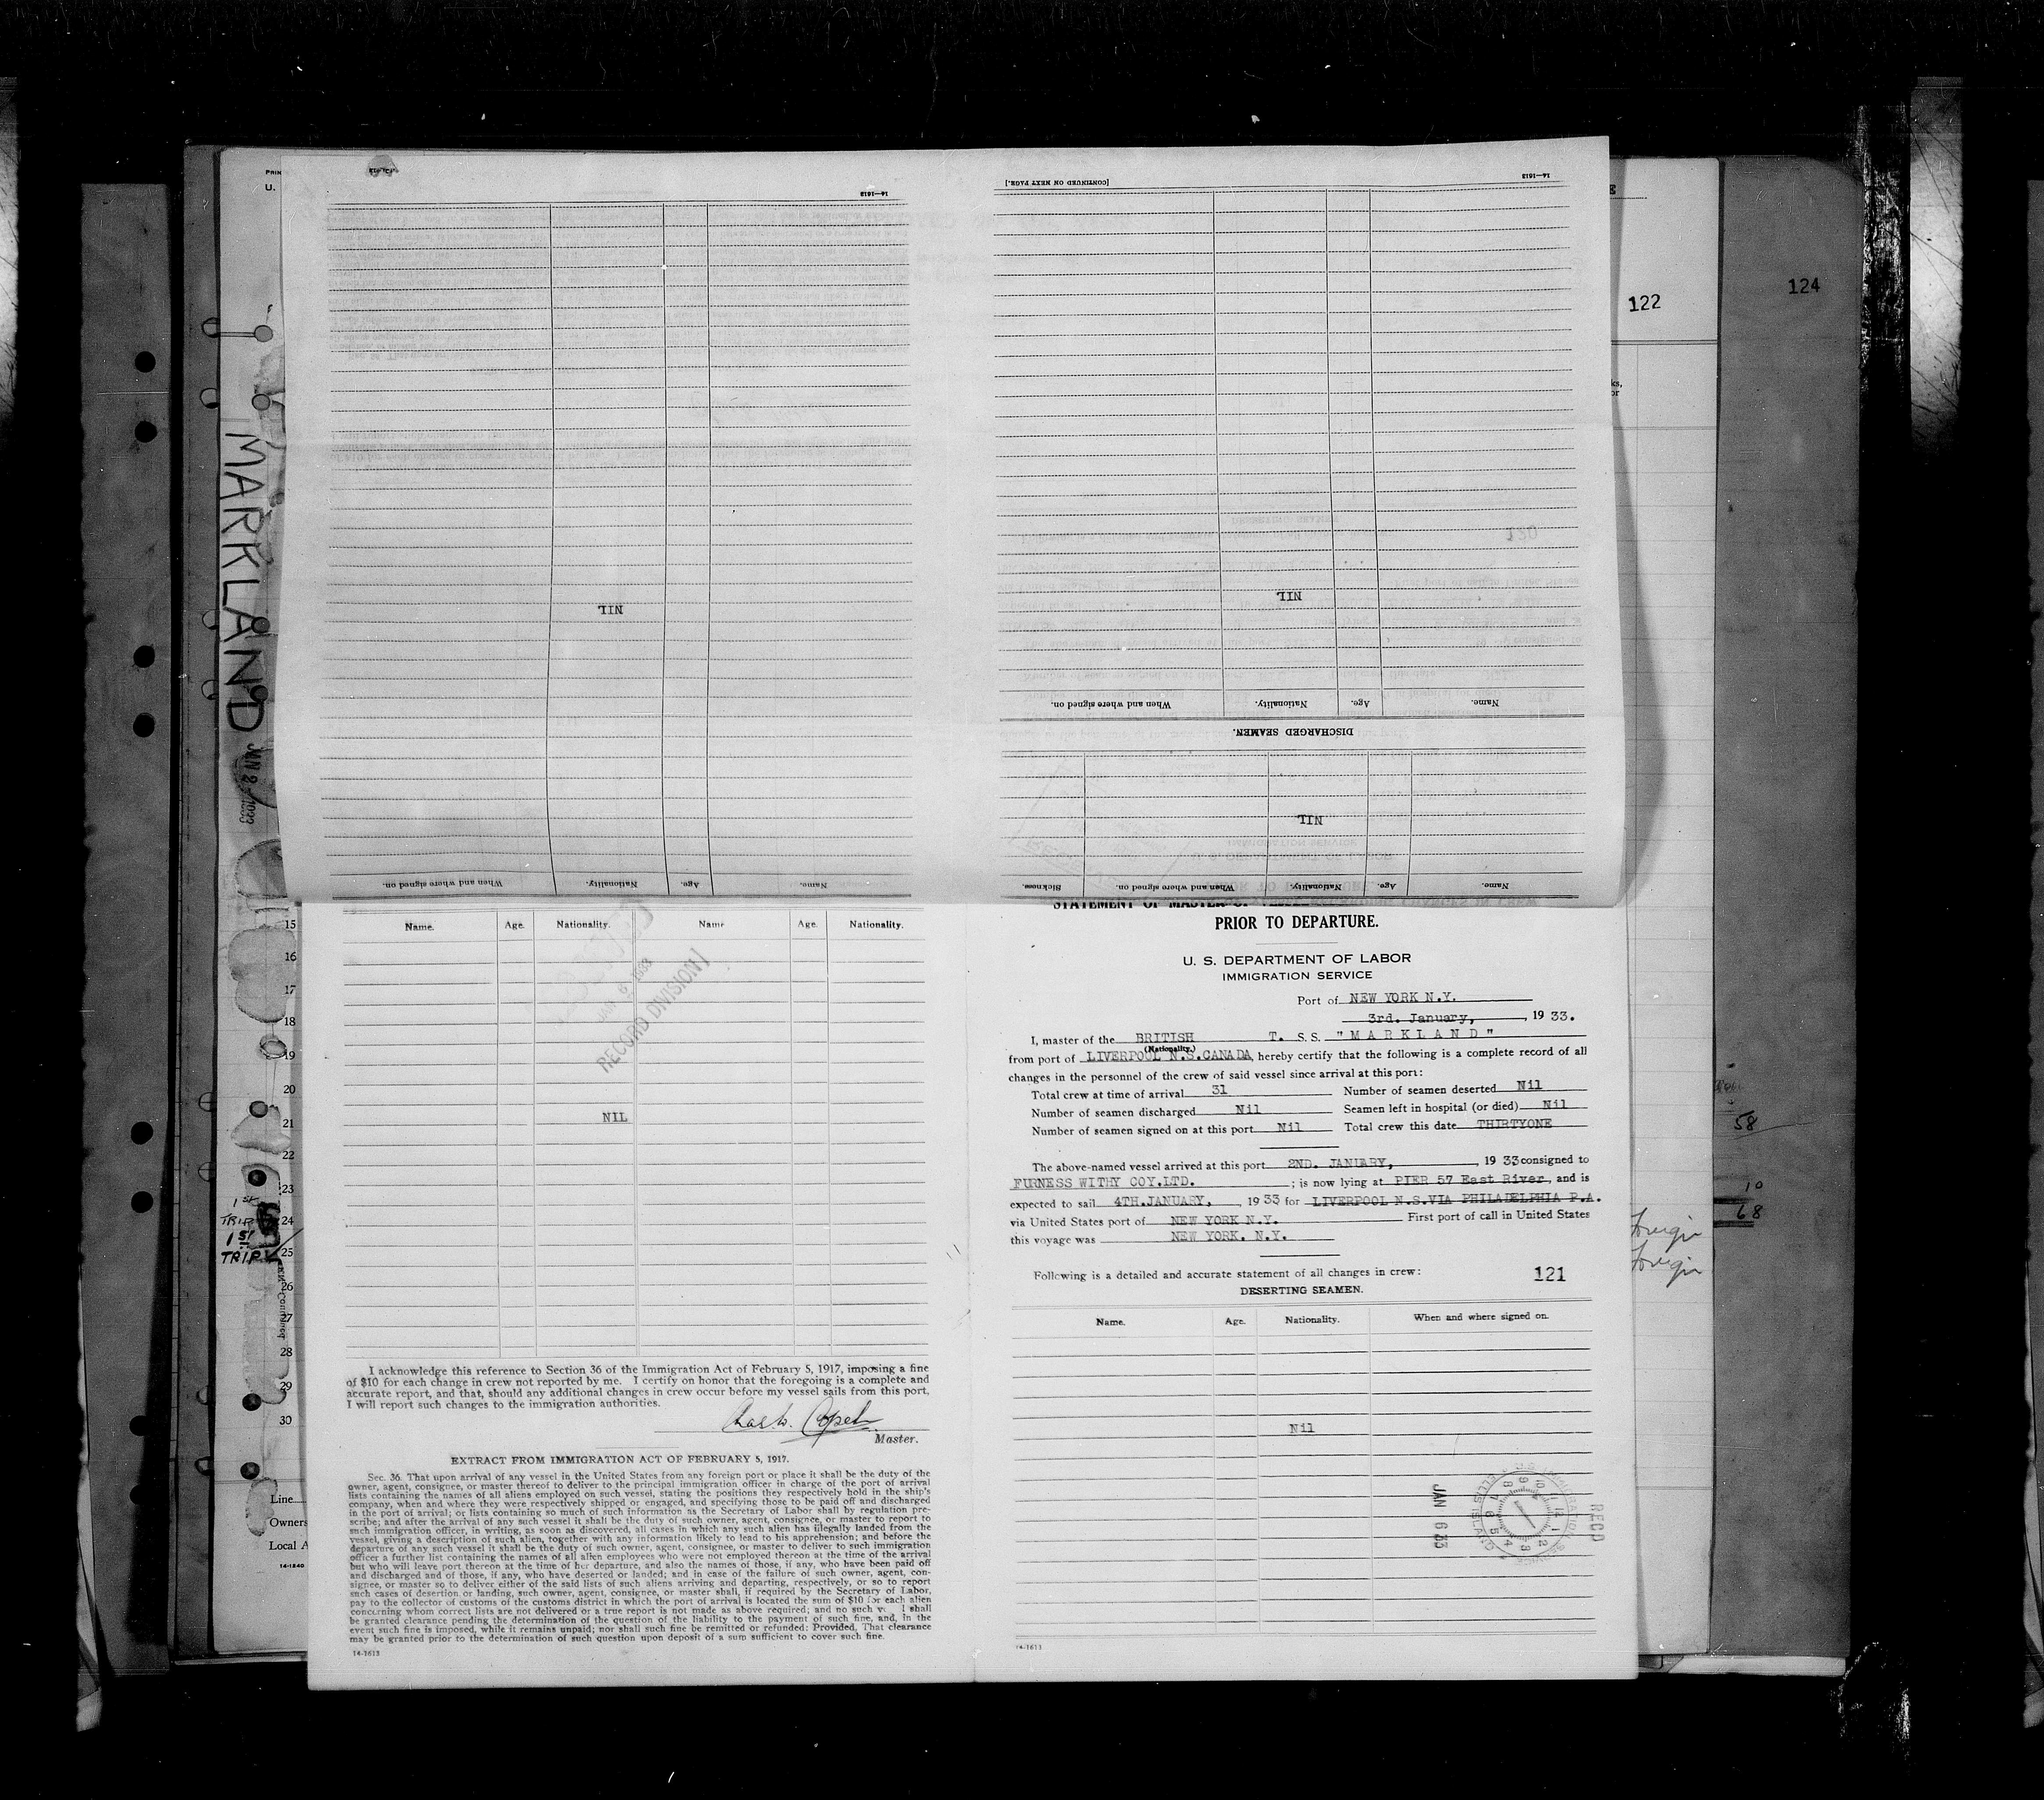 PRIN
U.
14—1613
[CONTINUED ON NEXT PAGE.]
14—1613
E
122
124
ks,
or
MARKLAND
JAN 2 - 1933
NIL
NIL
120
Name.
Age.
Nationality.
When and where signed on.
DISCHARGED SEAMEN.
NIL
Name.
Age.
Nationality.
When and where signed on.
Name.
Age.
Nationality.
When and where signed on.
Sickness.
15
16
17
18
19
20
21
22
23
24
25
26
27
28
29
30
1st
TRIP
1st
TRIP
Line
Owners
Local A
14-1240
Name.
Age.
Nationality.
Name
Age.
Nationality.
JAN 6 1933
RECORD DIVISION
NIL
I acknowledge this reference to Section 36 of the Immigration Act of February 5, 1917, imposing a fine
of $10 for each change in crew not reported by me. I certify on honor that the foregoing is a complete and
accurate report, and that, should any additional changes in crew occur before my vessel sails from this port,
I will report such changes to the immigration authorities.
Master.
EXTRACT FROM IMMIGRATION ACT OF FEBRUARY 5, 1917.
Sec. 36. That upon arrival of any vessel in the United States from any foreign port or place it shall be the duty of the
owner, agent, consignee, or master thereof to deliver to the principal immigration officer in charge of the port of arrival
lists containing the names of all aliens employed on such vessel, stating the positions they respectively hold in the ship's
company, when and where they were respectively shipped or engaged, and specifying those to be paid off and discharged
in the port of arrival; or lists containing so much of such information as the Secretary of Labor shall by regulation pre-
scribe; and after the arrival of any such vessel it shall be the duty of such owner, agent, consignee, or master to report to
such immigration officer, in writing, as soon as discovered, all cases in which any such alien has illegally landed from the
vessel, giving a description of such alien, together with any information likely to lead to his apprehension; and before the
departure of any such vessel it shall be the duty of such owner, agent, consignee, or master to deliver to such immigration
officer a further list containing the names of all alien employees who were not employed thereon at the time of the arrival
but who will leave port thereon at the time of her departure, and also the names of those, if any, who have been paid off
and discharged and of those, if any, who have deserted or landed; and in case of the failure of such owner, agent, con-
signee, or master so to deliver either of the said lists of such aliens arriving and departing, respectively, or so to report
such cases of desertion or landing, such owner, agent, consignee, or master shall, if required by the Secretary of Labor,
pay to the collector of customs of the customs district in which the port of arrival is located the sum of $10 for each alien
concerning whom correct lists are not delivered or a true report is not made as above required; and no such v l shall
be granted clearance pending the determination of the question of the liability to the payment of such fine, and, in the
event such fine is imposed, while it remains unpaid; nor shall such fine be remitted or refunded: Provided, That clearance
may be granted prior to the determination of such question upon deposit of a sum sufficient to cover such fine.
14-1613
STATEMENT OF MASTER OF
PRIOR TO DEPARTURE.
U. S. DEPARTMENT OF LABOR
IMMIGRATION SERVICE
Port of NEW YORK N.Y.
3rd. January, , 19 33.
I, master of the BRITISH T. S. S. "MARKLAND"
(Nationality.)
from port of LIVERPOOL N.S.CANADA, hereby certify that the following is a complete record of all
changes in the personnel of the crew of said vessel since arrival at this port:
Total crew at time of arrival 31 Number of seamen deserted Nil
Number of seamen discharged Nil Seamen left in hospital (or died) Nil
Number of seamen signed on at this port Nil Total crew this date THIRTYONE
The above-named vessel arrived at this port 2ND. JANUARY, , 19 33 consigned to
FURNESS WITHY COY.LTD. ; is now lying at PIER 57 East River, and is
expected to sail 4TH.JANUARY, , 19 33 for LIVERPOOL N.S.VIA PHILADELPHIA P.A.
via United States port of NEW YORK N.Y. First port of call in United States
this voyage was NEW YORK. N.Y.
Following is a detailed and accurate statement of all changes in crew:
121
DESERTING SEAMEN.
Name.
Age.
Nationality.
When and where signed on.
Nil
JAN 6 33
RECD
14-1613
58
10
68
Foreign
Foreign